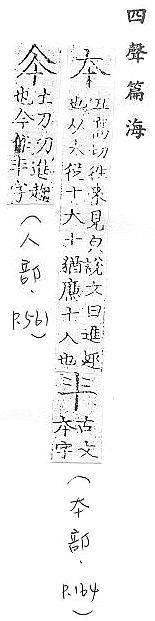 四聲篇海
夲
丑高切往來見皃說文曰進趣
也从大從十大十猶十人也
古文
夲字
（夲部．p.164）
土刀切進趨
也今作字
（人部．p.561）